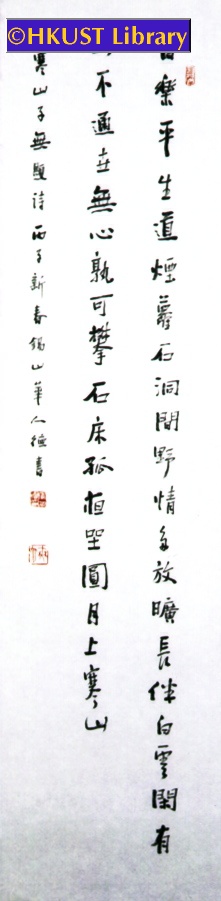 ©HKUST Library
樂平生道煙蘿石洞間野情多放曠長伴白雲閑有
不通世無心孰可攀石床孤夜坐圓月上寒山
寒山子無題詩丙子新春錫山華人德書